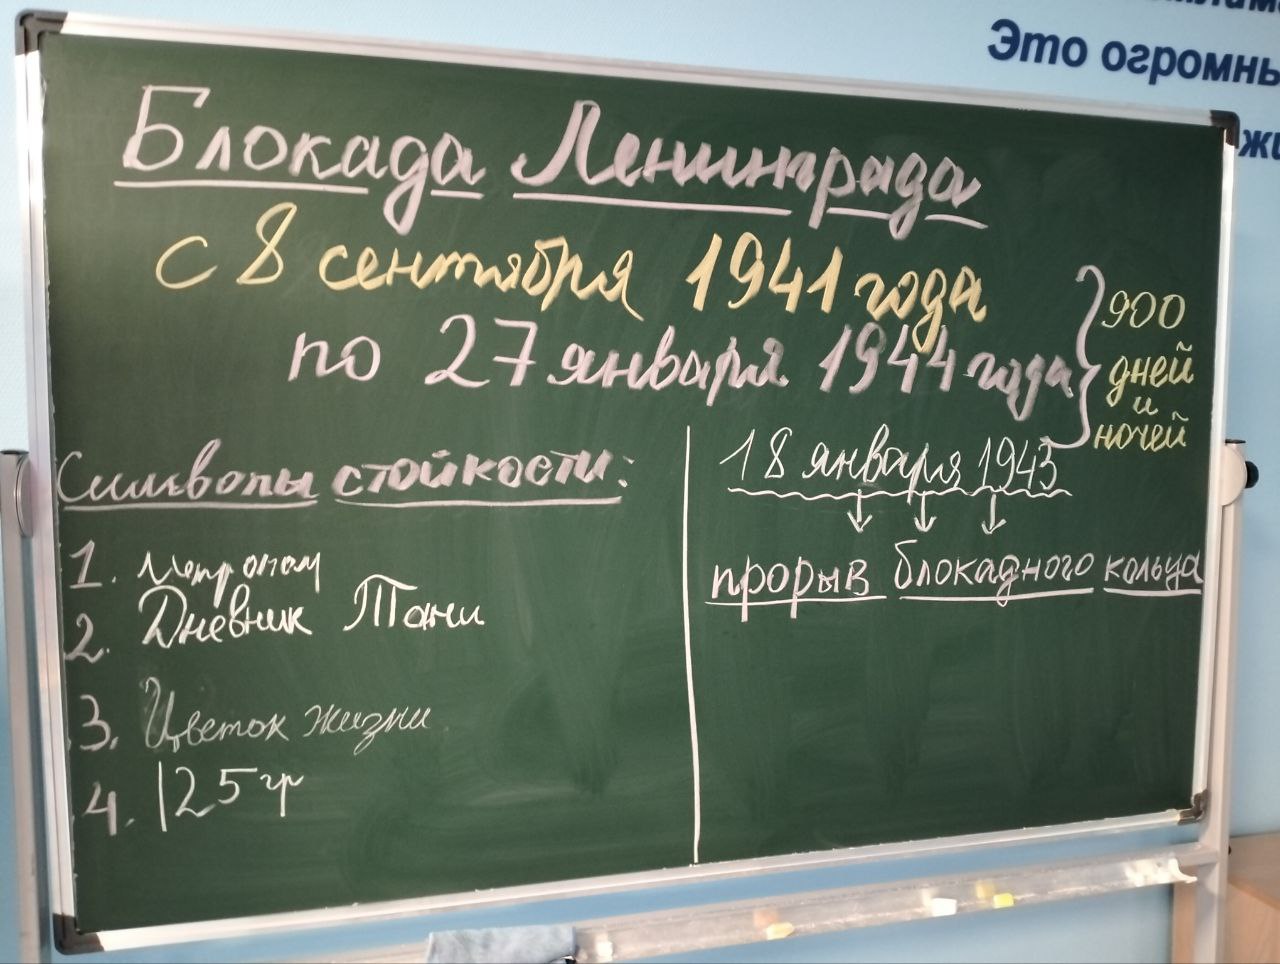 Это огромны
Блокада Ленинграда
с 8 сентября 1941 года
по 27 января 1944 года
900
дней
и
ночей
Символы стойкости:
1. Метроном
2. Дневник Тани
3. Цветок жизни
4. 125 гр
18 января 1943
прорыв блокадного кольца